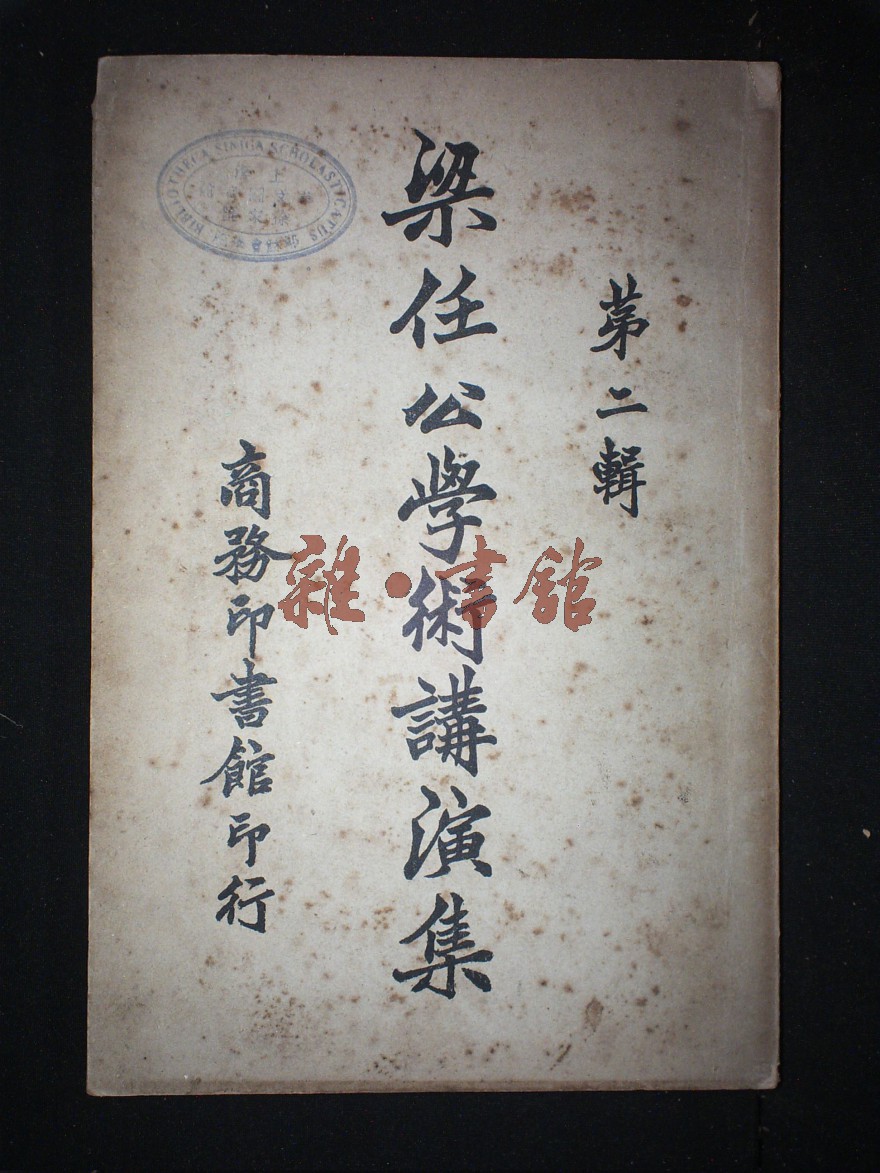 第二輯
梁任公學術講演集
商務印書館印行
雜·書館
BIBLIOTHECA SINICA SCHOLASTICATUS